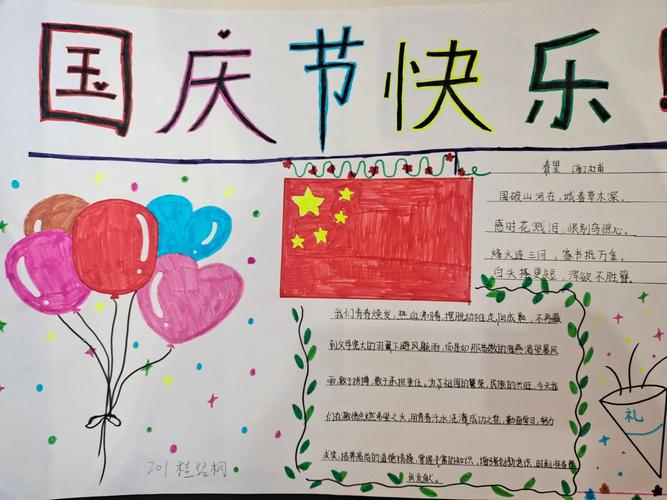 国庆节快乐!
春望 [唐]杜甫
国破山河在,城春草木深。
感时花溅泪,恨别鸟惊心。
烽火连三月,家书抵万金。
白头搔更短,浑欲不胜簪。
我们青春焕发,热血沸腾,摆脱幼稚走向成熟,不再藏
到父母宽大的羽翼下避风躲雨,而是如那高傲的海燕渴望暴风
雨,敢于拼搏,敢于承担重任。为了祖国的繁荣,民族的兴旺,今天我
们在激情点燃希望之火,用青春汗水浇灌成功之花,勤奋学习,努力
求实,培养高尚的道德情操,掌握丰富的知识,增强创新意识,时刻准备
贡献。
礼
201 桂 桐